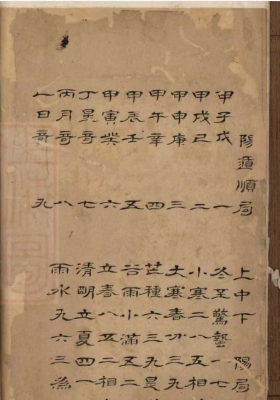 陽遁順局 上中下 陽局
甲子戊 一
甲戌己 二
甲申庚 三
甲午辛 四
甲辰壬 五
甲寅癸 六
丁星奇 七
丙月奇 八
乙日奇 九
冬至驚蟄一七
小寒二八五相
大寒春分三九
芒種六三九是
谷雨小滿五二
立春八五二相
清明立夏四一
雨水九六三為